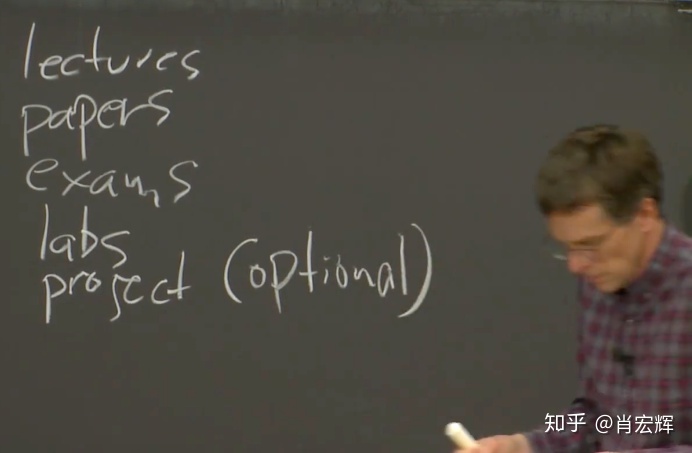 lectures
papers
exams
labs
project (optional)
知乎 @肖宏辉